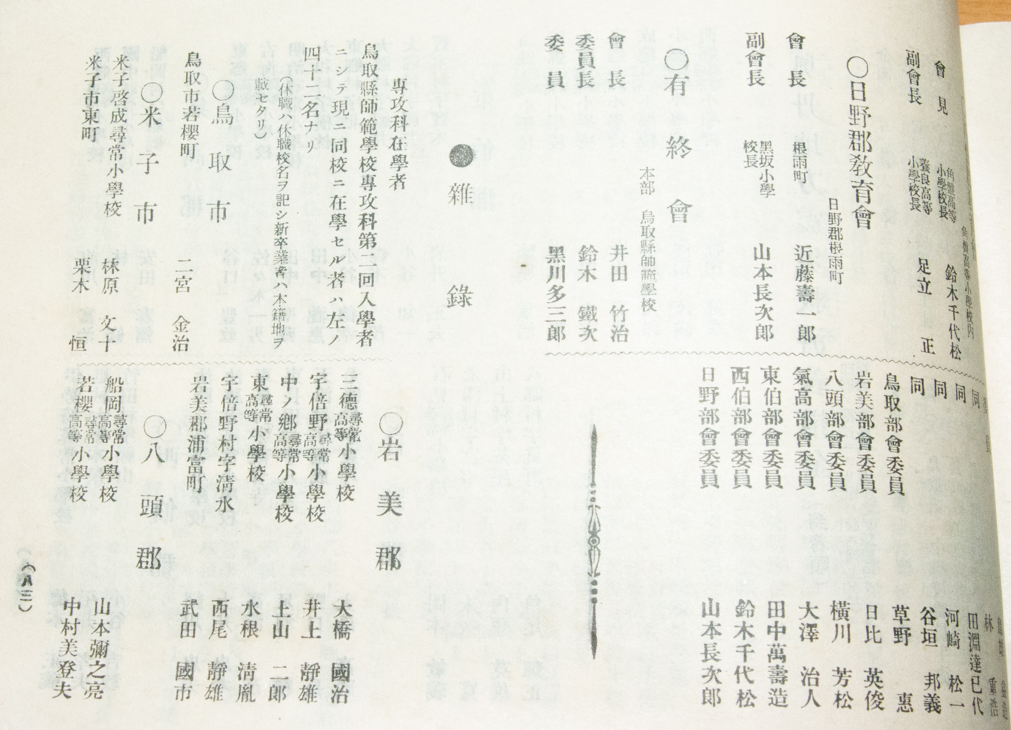 會見
角盤高等小學校長 鈴木千代松
副會長 養良高等小學校長 足立 正
〇日野郡敎育會
日野郡根雨町
會長 根雨町 近藤壽一郎
副會長 黑坂小學校長 山本長次郎
〇有終會
本部 鳥取縣師範學校
會長 井田 竹治
委員長 鈴木 鐵次
委員 黑川多三郎
同
同 田淵達巳代
同 河崎 松一
同 谷垣 邦義
鳥取部會委員 草野 惠
岩美部會委員 日比 英俊
八頭部會委員 橫川 芳松
氣高部會委員 大澤 治人
東伯部會委員 田中萬壽造
西伯部會委員 鈴木千代松
日野部會委員 山本長次郎
●雜錄
專攻科在學者
鳥取縣師範學校專攻科第二回入學者
ニシテ現ニ同校ニ在學セル者ハ左ノ
四十二名ナリ
(休職ハ休職校名ヲ記シ新卒業者ハ本籍地ヲ
載セタリ)
〇鳥取市
鳥取市若櫻町 二宮 金治
〇米子市
米子啓成尋常小學校 林原 文十
米子市東町 栗木 恒
〇岩美郡
三德尋常高等小學校 大橋 國治
宇倍野尋常高等小學校 井上 靜雄
中ノ鄕尋常高等小學校 土山 二郎
東尋常高等小學校 水根 淸胤
宇倍野村字淸水 西尾 靜雄
岩美郡浦富町 武田 國市
〇八頭郡
船岡尋常高等小學校 山本彌之亮
若櫻尋常高等小學校 中村美登夫
(八三)